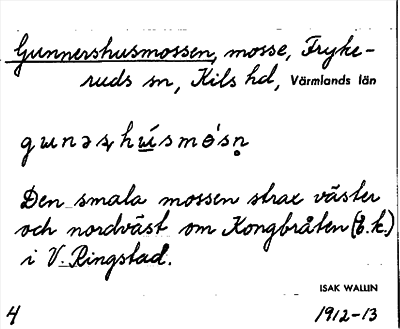 Gunnershusmossen, mosse, Fryke-
ruds sn, Kils hd, Värmlands län
gɯnəʂhɯ́smo̊̀sn̥
Den smala mossen strax väster
och nordväst om Kongbråten (Ö.k.)
i V. Ringstad.
ISAK WALLIN
4 1912-13